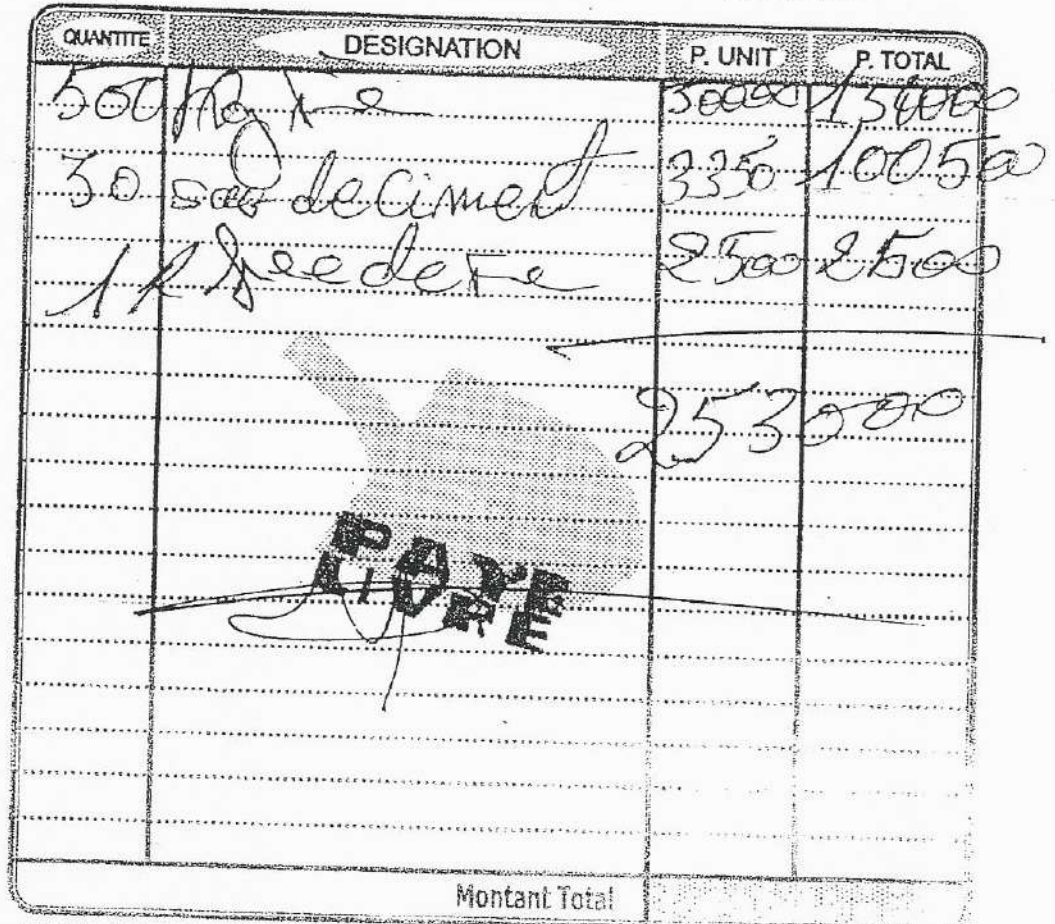 QUANTITE DESIGNATION P. UNIT P. TOTAL
500 Kg Fe 30000 150000
30 sac de ciment 3350 100500
1 R de Fe 2500 2500
253000
PAYE
LIVRE
Montant Total